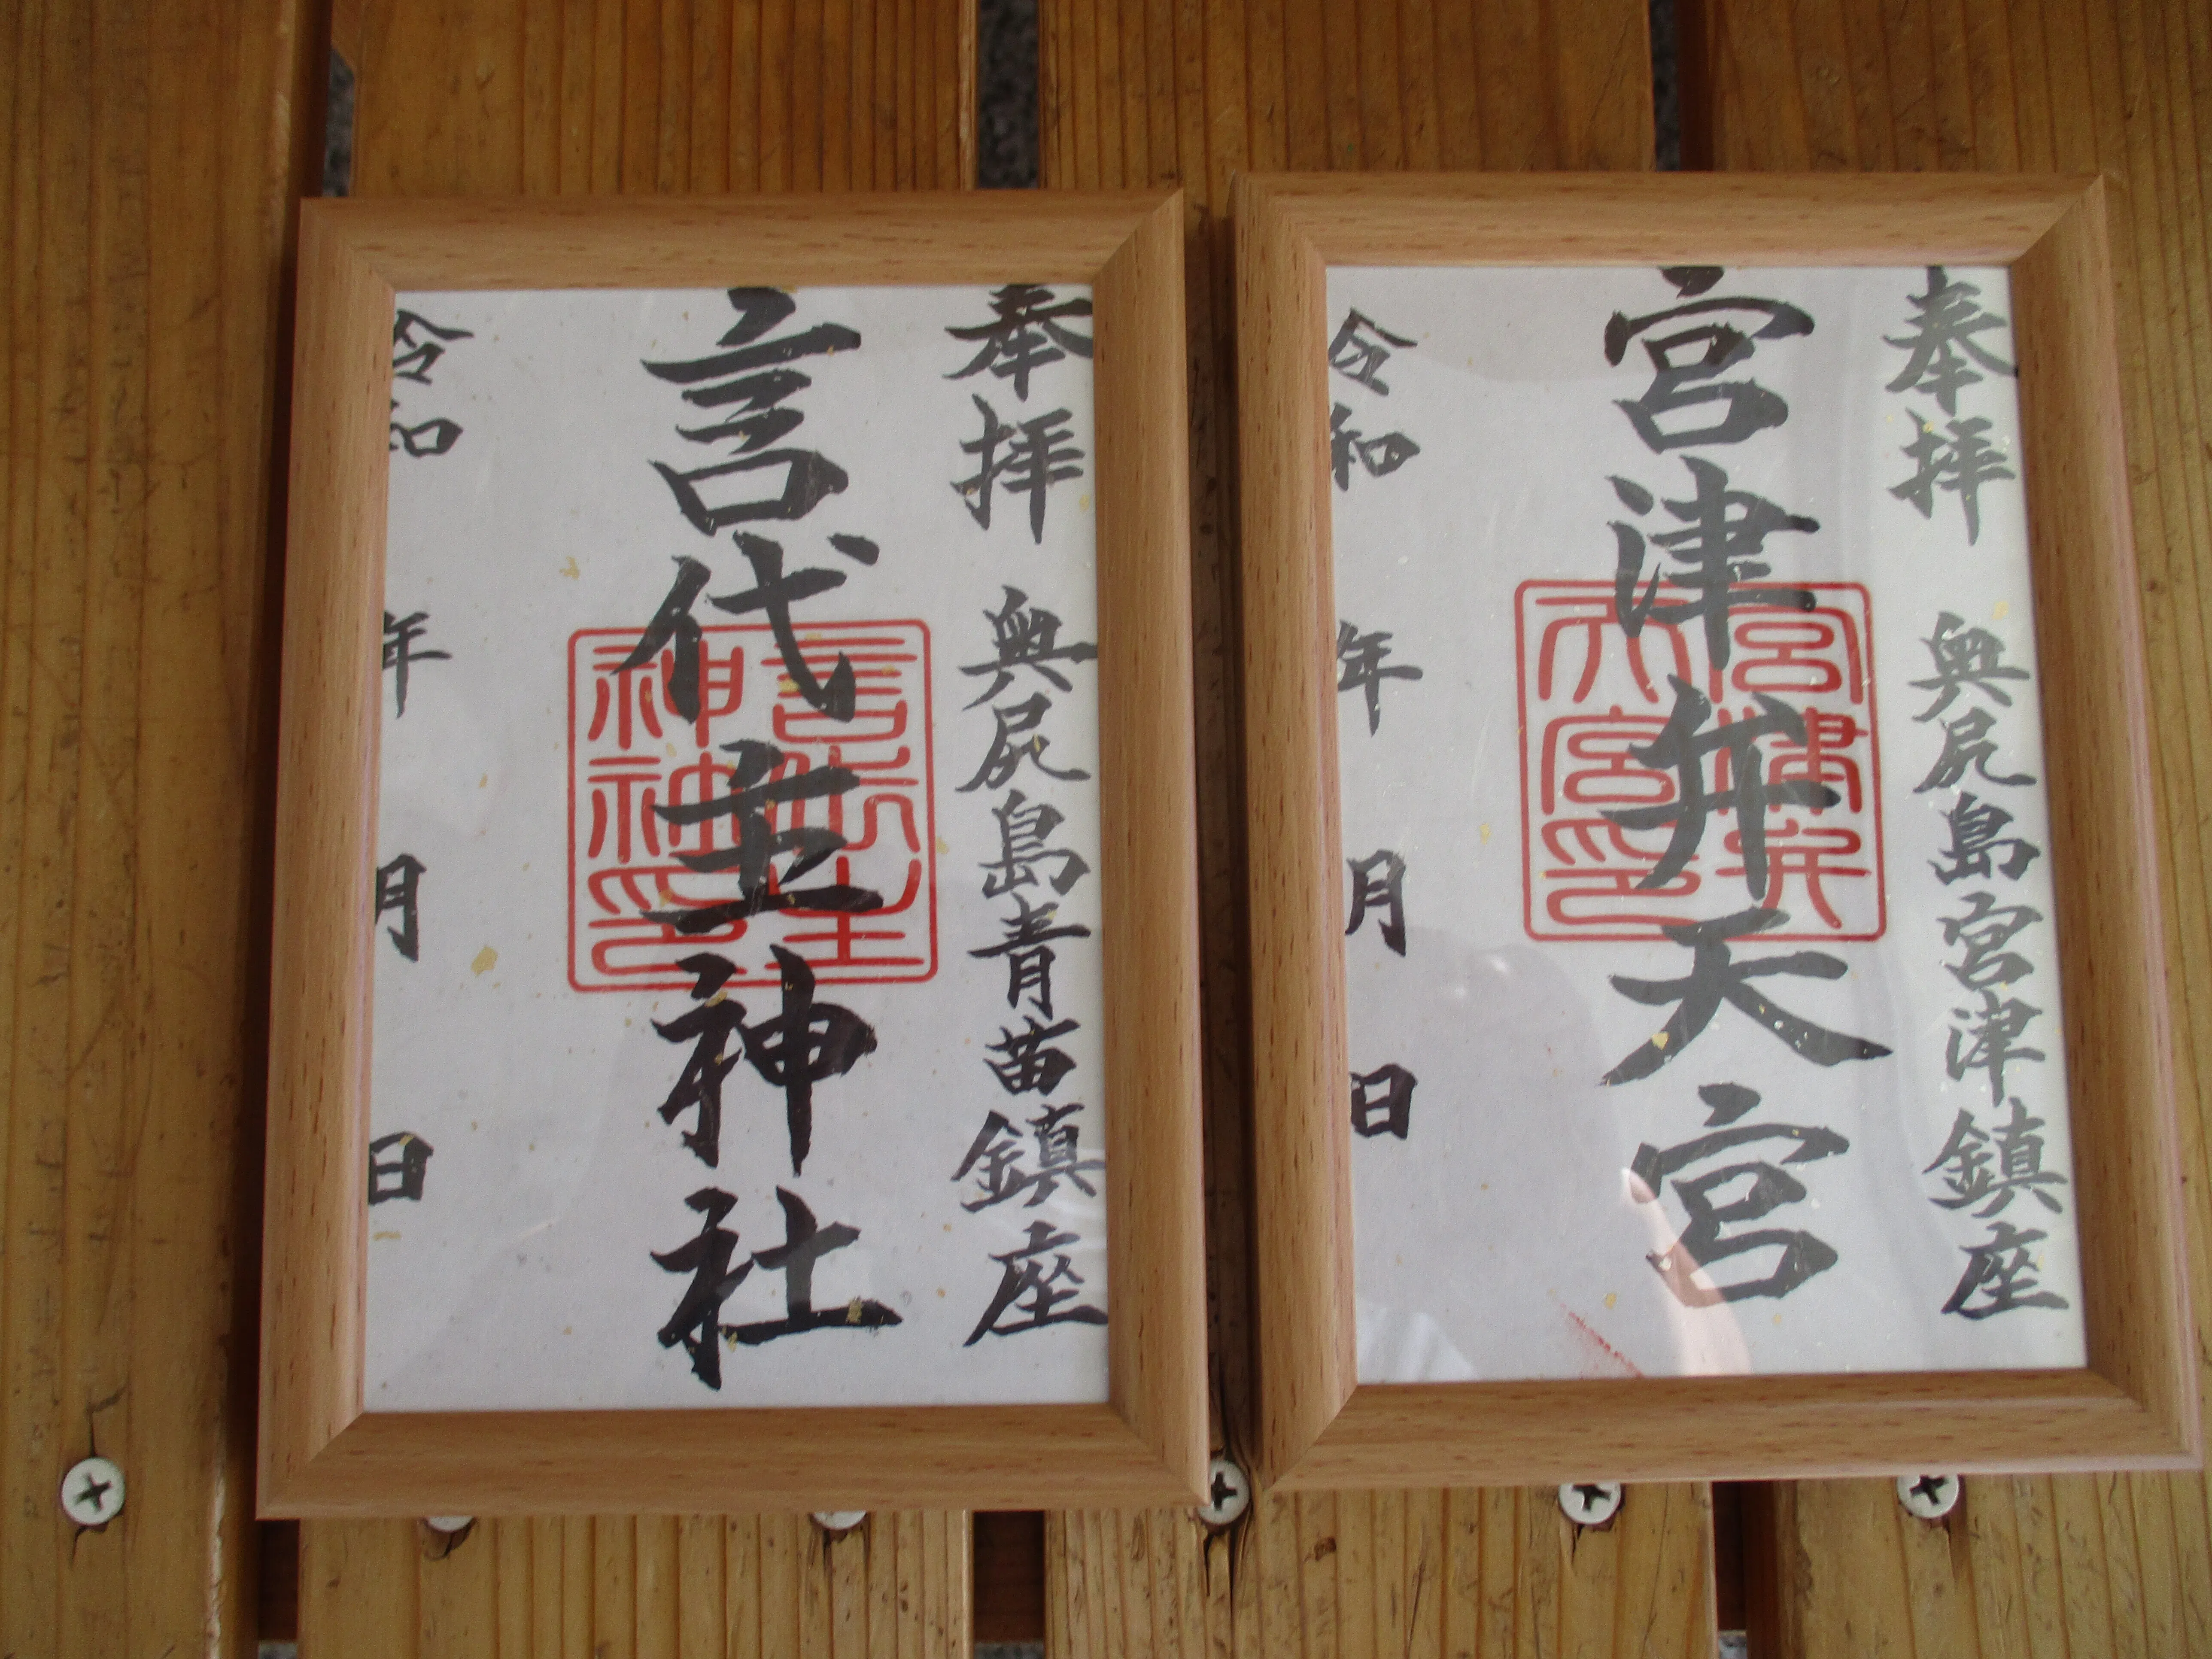 奉拝 奥尻島青苗鎮座
言代主神社
言代主神社印
令和 年 月 日
奉拝 奥尻島宮津鎮座
宮津弁天宮
宮津弁天宮印
令和 年 月 日